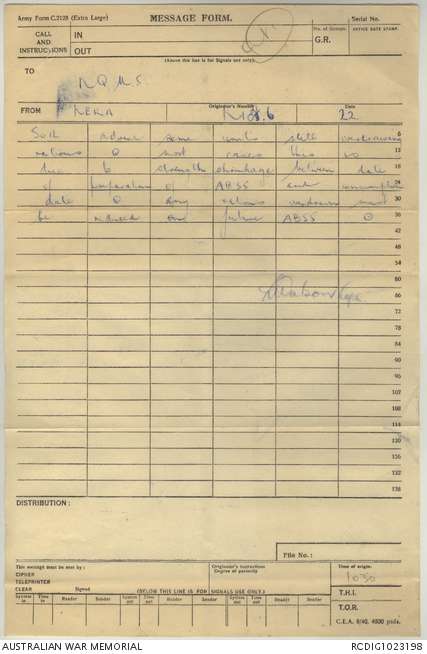 Army Form C.2128 (Extra Large) MESSAGE FORM. Serial No.
CALL AND INSTRUCTIONS IN No. of Groups. OFFICE DATE STAMP.
OUT G.R.
(Above this line is for Signals use only).
TO
FROM Originator's Number Date
22
advise some units still overdrawing 6
rations O most cases this 12
due to strength between date 18
of preparation of AB55 and consumption 24
date O any rations overdrawn must 30
be on future AB55 O 36
42
48
54
60
66
72
78
84
90
96
102
108
114
120
126
132
138
DISTRIBUTION :
File No. :
This message must be sent by : Originator's Instructions Time of origin.
CIPHER Degree of priority 1030
TELEPRINTER
CLEAR Signed (BELOW THIS LINE IS FOR SIGNALS USE ONLY.) T.H.I.
System in Time in Reader Sender System out Time out Reader Sender System out Time out Reader Sender T.O.R.
AUSTRALIAN WAR MEMORIAL RCDIG1023198